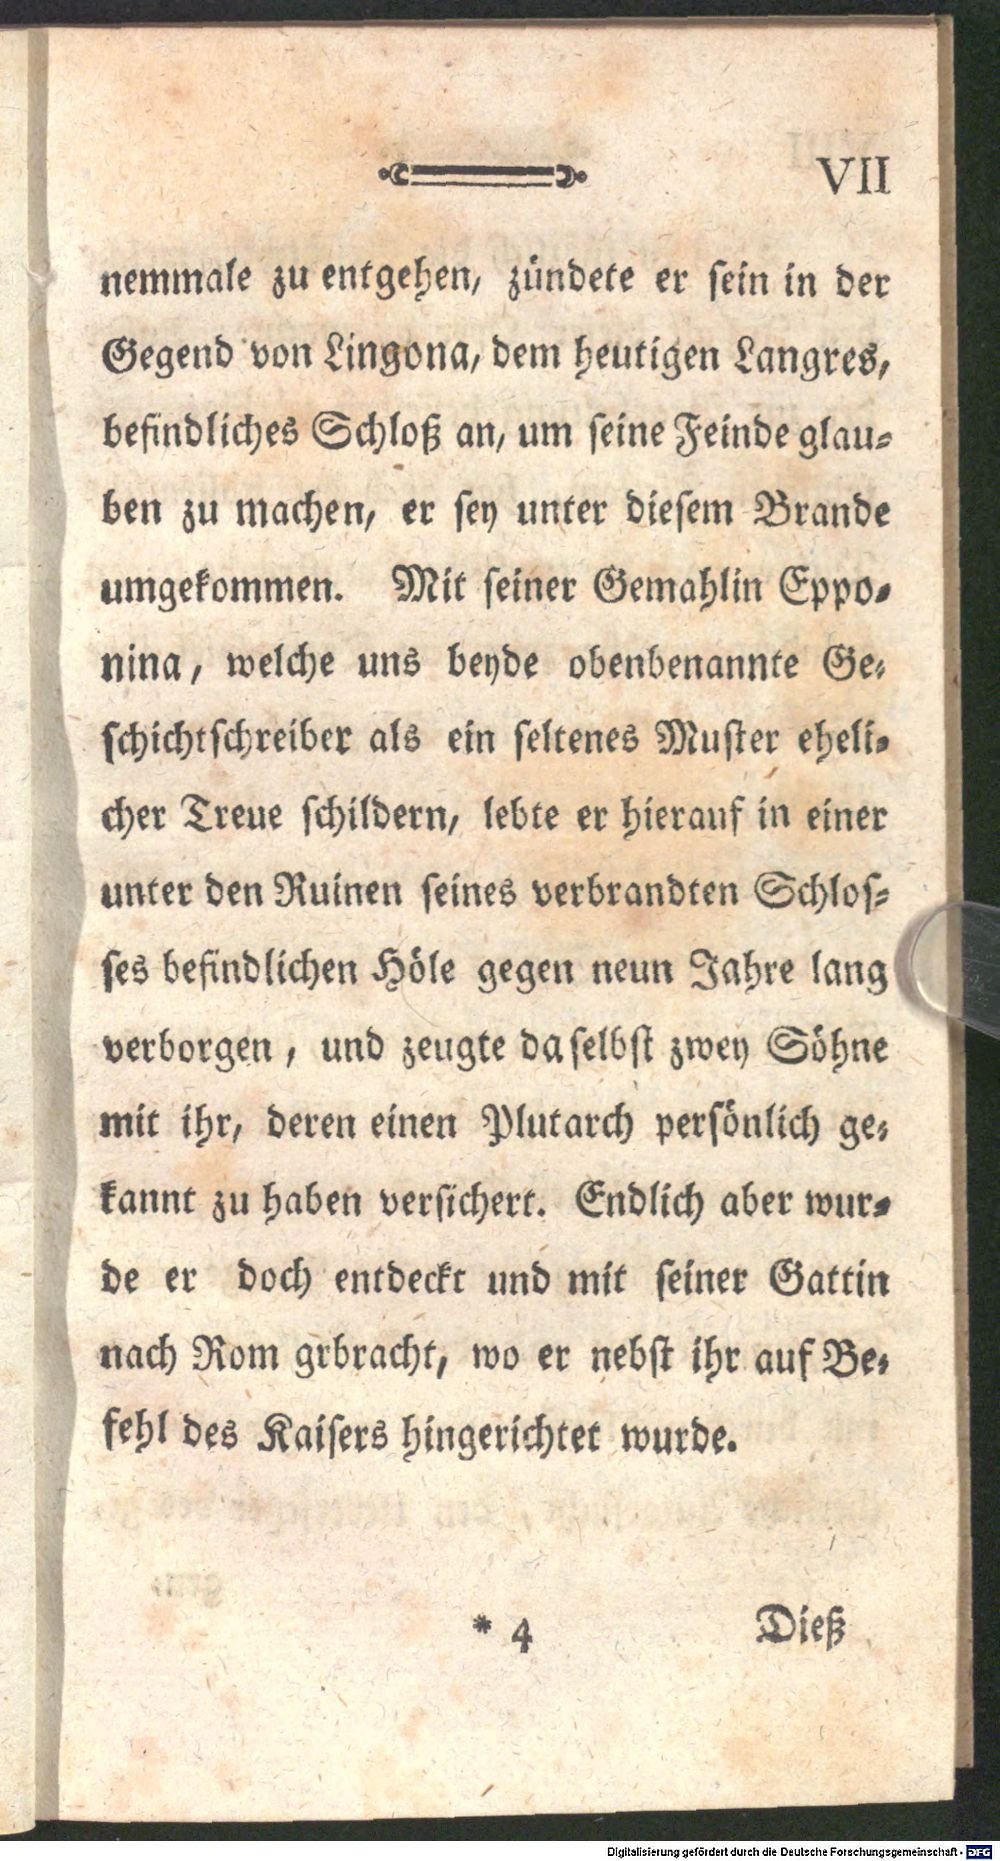 VII
nemmale zu entgehen, zündete er sein in der
Gegend von Lingona, dem heutigen Langres,
befindliches Schloß an, um seine Feinde glau-
ben zu machen, er sey unter diesem Brande
umgekommen. Mit seiner Gemahlin Eppo-
nina, welche uns beyde obenbenannte Ge-
schichtschreiber als ein seltenes Muster eheli-
cher Treue schildern, lebte er hierauf in einer
unter den Ruinen seines verbrandten Schlos-
ses befindlichen Höle gegen neun Jahre lang
verborgen, und zeugte daselbst zwey Söhne
mit ihr, deren einen Plutarch persönlich ge-
kannt zu haben versichert. Endlich aber wur-
de er doch entdeckt und mit seiner Gattin
nach Rom grbracht, wo er nebst ihr auf Be-
fehl des Kaisers hingerichtet wurde.
* 4 Dieß
Digitalisierung gefördert durch die Deutsche Forschungsgemeinschaft - DFG